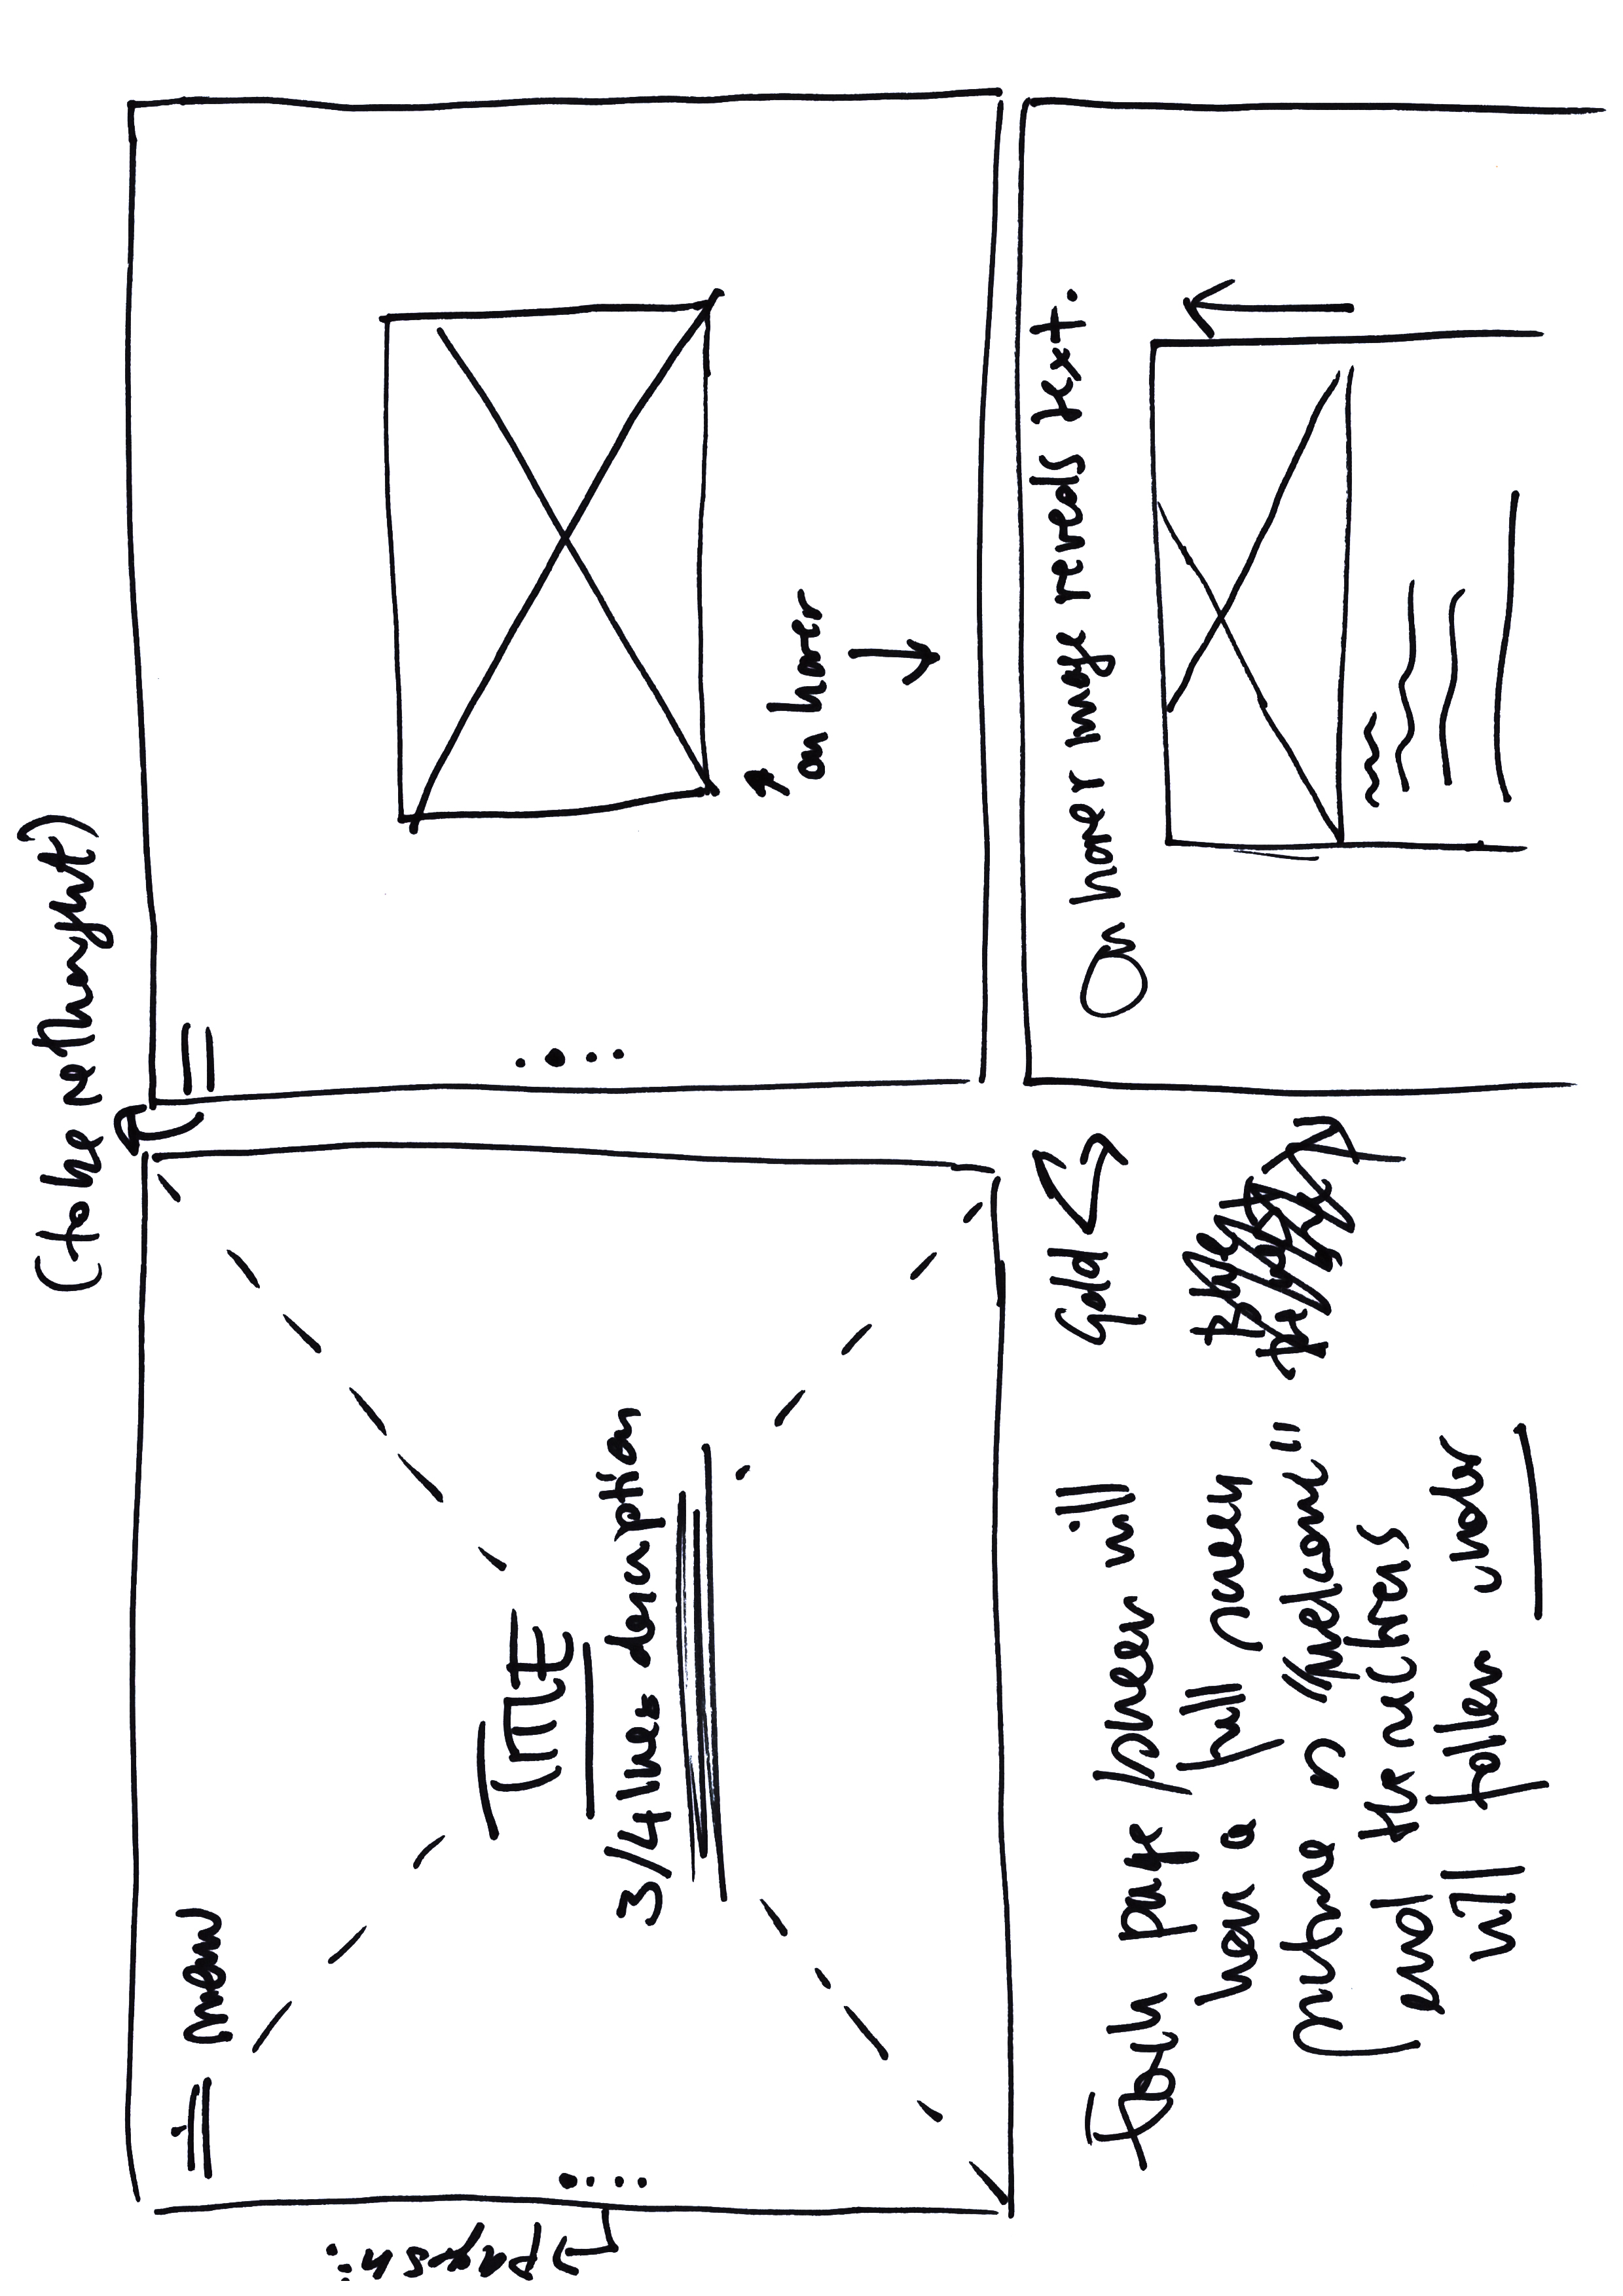 (to be rethought)
menu
TITLE
3/4 lines description
pages
on hover
On hover image reveals text.
Gold
Each page / screen will
have a full screen
picture n "Welcome"
and the
will follow under